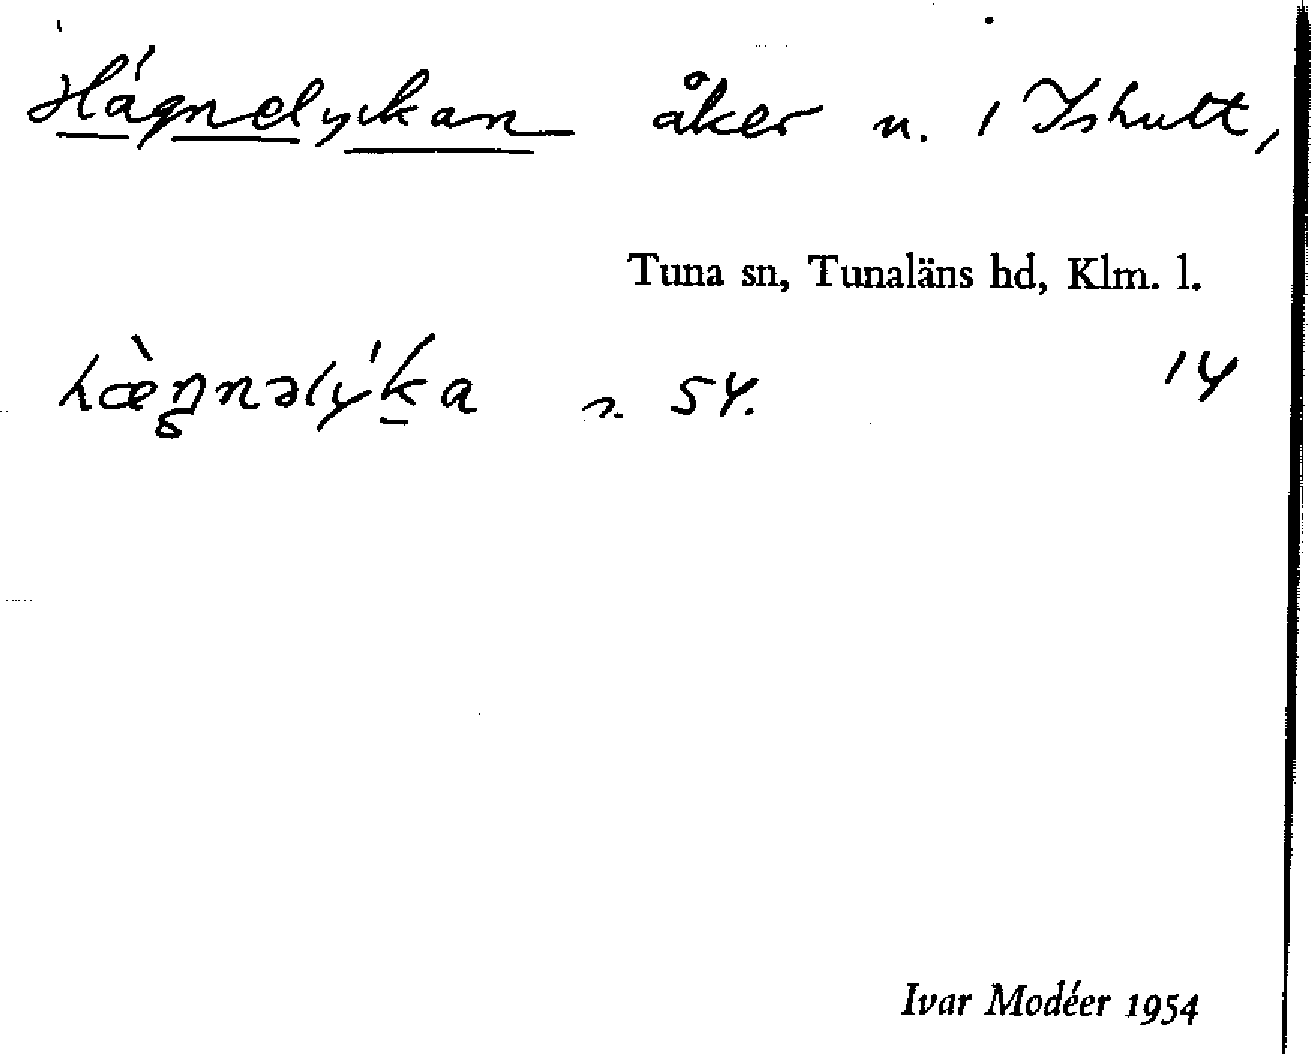 Hágnelyckan åker n. 1 Ishult,
Tuna sn, Tunaläns hd, Klm. l.
hæ̀ŋnəlýk̲a n. 54. 14
Ivar Modéer 1954